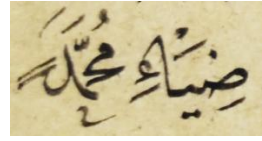 ضِيَاءِ مُحَمَّد